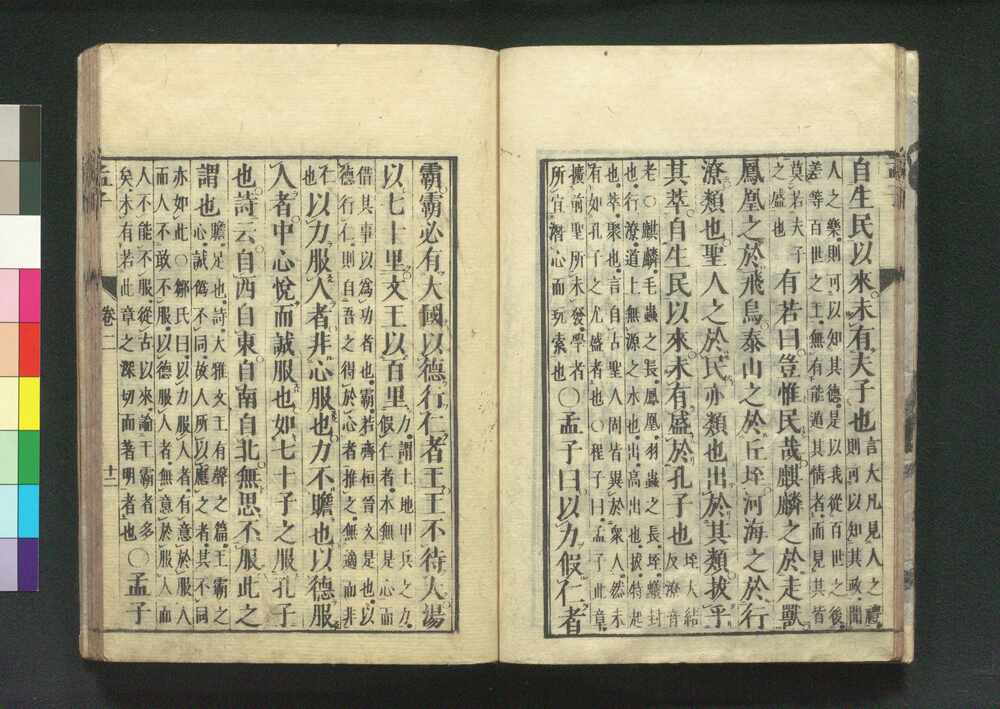 自生民以來未有夫子也
言大凡見人之禮
則可以知其政聞
人之樂則可以知其德是以我從百世之後
差等百世之王無有能遁其情者而見其皆
莫若夫子
之盛也
有若曰豈惟民哉麒麟之於走獸
鳳凰之於飛鳥泰山之於丘垤河海之於行
潦類也聖人之於民亦類也出於其類拔乎
其萃自生民以來未有盛於孔子也
垤大結
反潦音
老○麒麟毛蟲之長鳳凰羽蟲之長垤蟻封
也行潦道上無源之水也出高出也拔特起
也萃聚也言自古聖人固皆異於衆人然未
有如孔子之尤盛者也○程子曰孟子此章
擴前聖所未發學者
所宜潛心而玩索也
○孟子曰以力假仁者
霸霸必有大國以德行仁者王王不待大湯
以七十里文王以百里
力謂土地甲兵之力
假仁者本無是心而
借其事以爲功者也霸若齊桓晉文是也以
德行仁則自吾之得於心者推之無適而非
仁
也
以力服人者非心服也力不贍也以德服
人者中心悅而誠服也如七十子之服孔子
也詩云自西自東自南自北無思不服此之
謂也
贍足也詩大雅文王有聲之篇王霸之
心誠僞不同故人所以應之者其不同
亦如此○鄒氏曰以力服人者有意於服人
而人不敢不服以德服人者無意於服人而
人不能不服從古以來論王霸者多
矣未有若此章之深切而著明者也
○孟子
孟子 卷二 十二